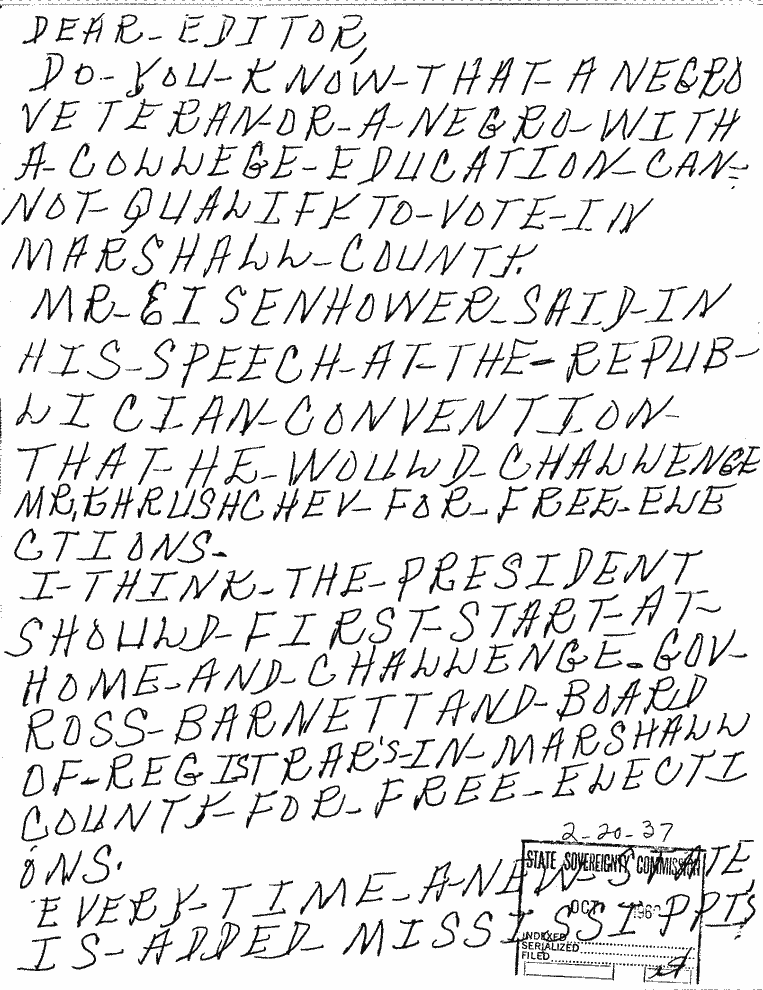 DEAR-EDITOR,
DO-YOU-KNOW-THAT-A NEGRO
VETERAN-OR-A-NEGRO-WITH
A-COLLEGE-EDUCATION-CAN-
NOT-QUALIFY TO-VOTE-IN
MARSHALL-COUNTY.
MR-EISENHOWER-SAID-IN
HIS-SPEECH-AT-THE-REPUB-
LICIAN-CONVENTION-
THAT-HE-WOULD-CHALLENGE
MR,KHRUSHCHEV-FOR-FREE-ELE
CTIONS-
I-THINK-THE-PRESIDENT
SHOULD-FIRST-START-AT-
HOME-AND-CHALLENGE-GOV-
ROSS-BARNETT AND-BOARD
OF-REGISTRAR'S-IN-MARSHALL
COUNTY-FOR-FREE-ELECTI
ONS.
2-20-37
EVERY-TIME-A-NEW-STATE,
IS-ADDED-MISSISSIPPI'S
STATE SOVEREIGNTY COMMISSION
OCT
INDEXED
SERIALIZED
FILED